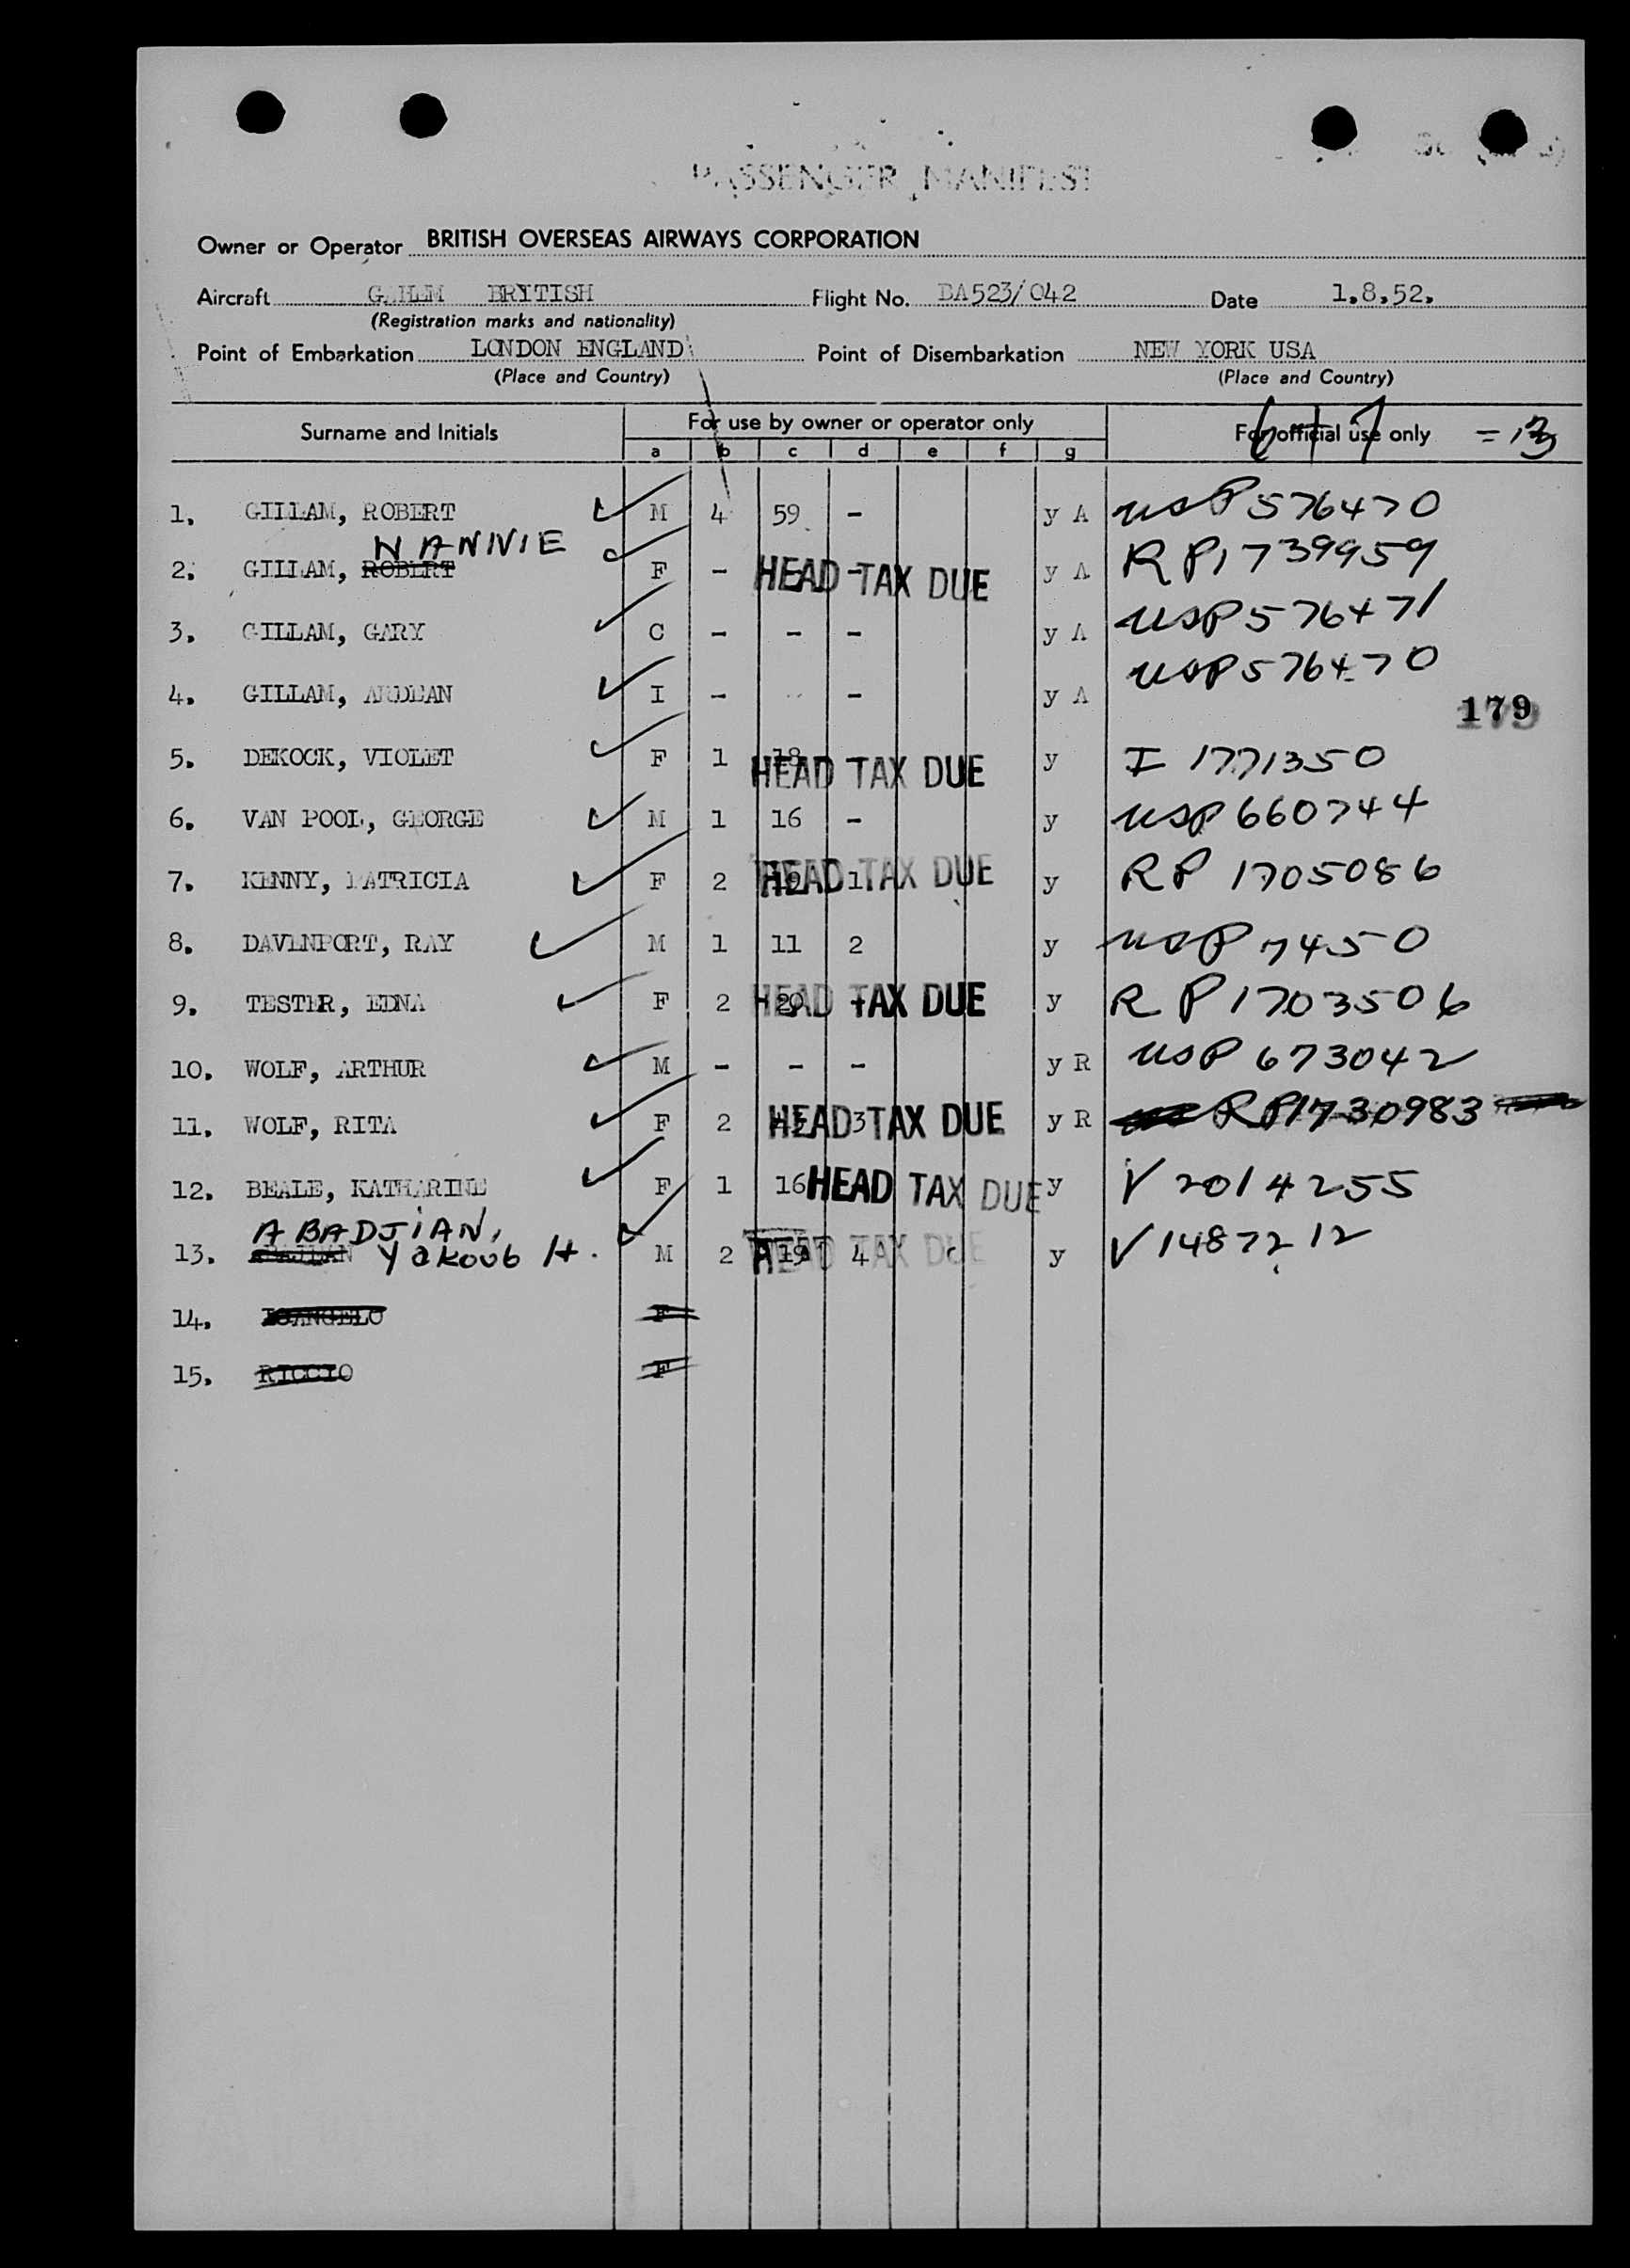 PASSENGER MANIFEST
Owner or Operator BRITISH OVERSEAS AIRWAYS CORPORATION
Aircraft BRITISH Flight No. BA523/042 Date 1.8.52.
(Registration marks and nationality)
Point of Embarkation LONDON ENGLAND Point of Disembarkation NEW YORK USA
(Place and Country) (Place and Country)
Surname and Initials For use by owner or operator only For official use only 6+7 =13
a b c d e f g
1. GILLAM, ROBERT M 4 59 - y A USP 576470
NANNIE
2. GILLAM, ROBERT F - HEAD TAX DUE y A RP1739959
3. GILLAM, GARY C - - - y A USP 576471
4. GILLAM, ARDEAN I - - - y A USP 576470
179
5. DEKOCK, VIOLET F 1 18 HEAD TAX DUE y I 1771350
6. VAN POOL, GEORGE M 1 16 - y USP 660744
7. KENNY, PATRICIA F 2 19 1 HEAD TAX DUE y RP 1705086
8. DAVENPORT, RAY M 1 11 2 y USP 7450
9. TESTER, EDNA F 2 20 - HEAD TAX DUE y RP1703506
10. WOLF, ARTHUR M - - - y R USP 673042
11. WOLF, RITA F 2 3 HEAD TAX DUE y R RP1730983
12. BEALE, KATHARINE F 1 16 HEAD TAX DUE y V 2014255
ABADJIAN,
13. Yakoub H. M 2 19 4 HEAD TAX DUE y V1487212
14. F
15. RICCIO F